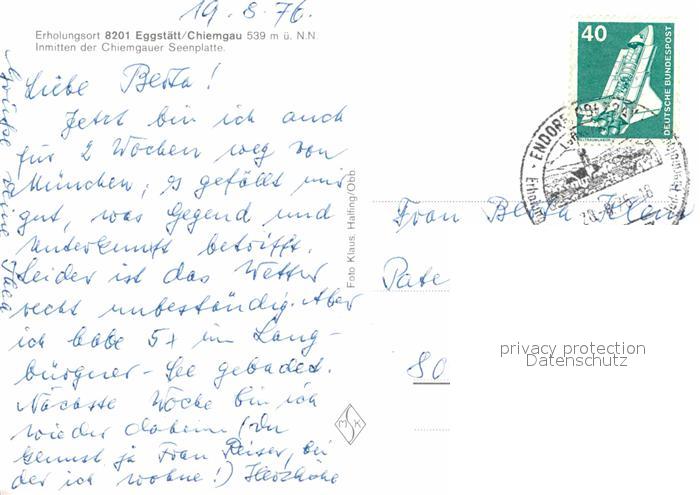 19.8.76.
Erholungsort 8201 Eggstätt/Chiemgau 539 m ü. N.N.
Inmitten der Chiemgauer Seenplatte.
Liebe Berta!
Jetzt bin ich auch
für 2 Wochen weg von
München; es gefällt mir
gut, was Gegend und
Unterkunft betrifft.
Leider ist das Wetter
recht unbeständig. Aber
ich habe 5x im Lang-
bürgner-See gebadet.
Nächste Woche bin ich
wieder daheim (Du
kennst ja Frau Reiser, bei
der ich wohne!) Herzliche
Grüße Deine
Foto Klaus, Halfing/Obb
MSK
40
DEUTSCHE BUNDESPOST
ENDORF
Frau Berta Klein
Pate
80
privacy protection
Datenschutz